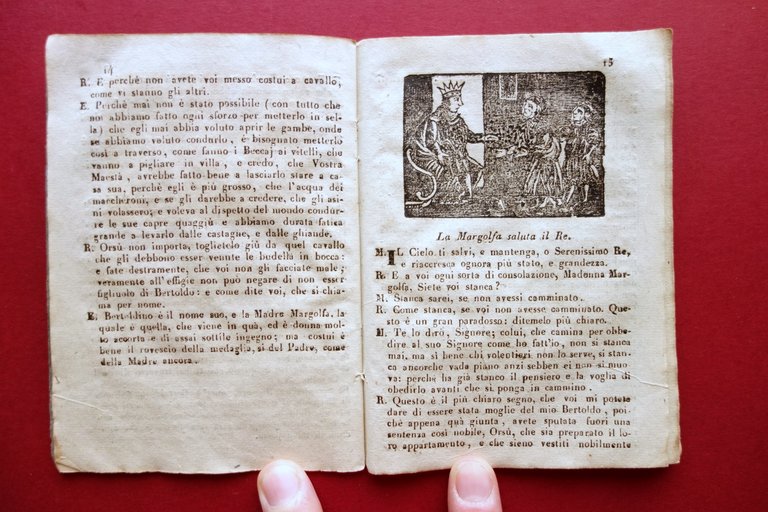 14
R. E perchè non avete voi messo costui a cavallo,
come vi stanno gli altri.
E. Perchè mai non è stato possibile (con tutto che
noi abbiamo fatto ogni sforzo per metterlo in sel-
la) che egli mai abbia voluto aprir le gambe, onde
se abbiamo voluto condurlo, è bisognato metterlo
così a traverso, come fanno i Beccaj ai vitelli, che
vanno a pigliare in villa, e credo, che Vostra
Maestà, avrebbe fatto bene a lasciarlo stare a ca-
sa sua, perchè egli è più grosso, che l'acqua dei
maccheroni, e se gli darebbe a credere, che gli asi-
ni volassero; e voleva al dispetto del mondo condur-
re le sue capre quaggiù e abbiamo durata fatica
grande a levarlo dalle castagne, e dalle ghiande.
R. Orsù non importa, toglietelo giù da quel cavallo
che gli debbono esser venute le budella in bocca:
e fate destramente, che voi non gli facciate male;
veramente all'effigie non può negare di non esser
figliuolo di Bertoldo: e come dite voi, che si chia-
ma per nome.
E. Bertoldino è il nome suo, e la Madre Margolfa, la
quale è quella, che viene in quà, ed è donna mol-
to accorta e di assai sottile ingegno; ma costui è
bene il rovescio della medaglia, sì del Padre, come
della Madre ancora.
15
La Margolfa saluta il Re.
M. IL Cielo ti salvi, e mantenga, o Serenissimo Re,
e riaccresca ognora più stato, e grandezza.
R. E a voi ogni sorta di consolazione, Madonna Mar-
golfa, Siete voi stanca?
M. Stanca sarei, se non avessi camminato.
R. Come stanca, se voi non avesse camminato. Que-
sto è un gran paradosso: ditemelo più chiaro.
M. Te lo dirò, Signore; colui, che camina per obbe-
dire al suo Signore come ho fatt'io, non si stanca
mai, ma sì bene chi volentieri non lo serve, si stan-
ca ancorchè vada piano anzi sebben ei non si muo-
va: perchè ha già stanco il pensiero e la voglia di
obedirlo avanti che si ponga in cammino.
R. Questo è il più chiaro segno, che voi mi potete
dare di essere stata moglie del mio Bertoldo, poi-
chè appena quà giunta, avete sputata fuori una
sentenza così nobile, Orsù, che sia preparato il lo-
ro appartamento, e che sieno vestiti nobilmente